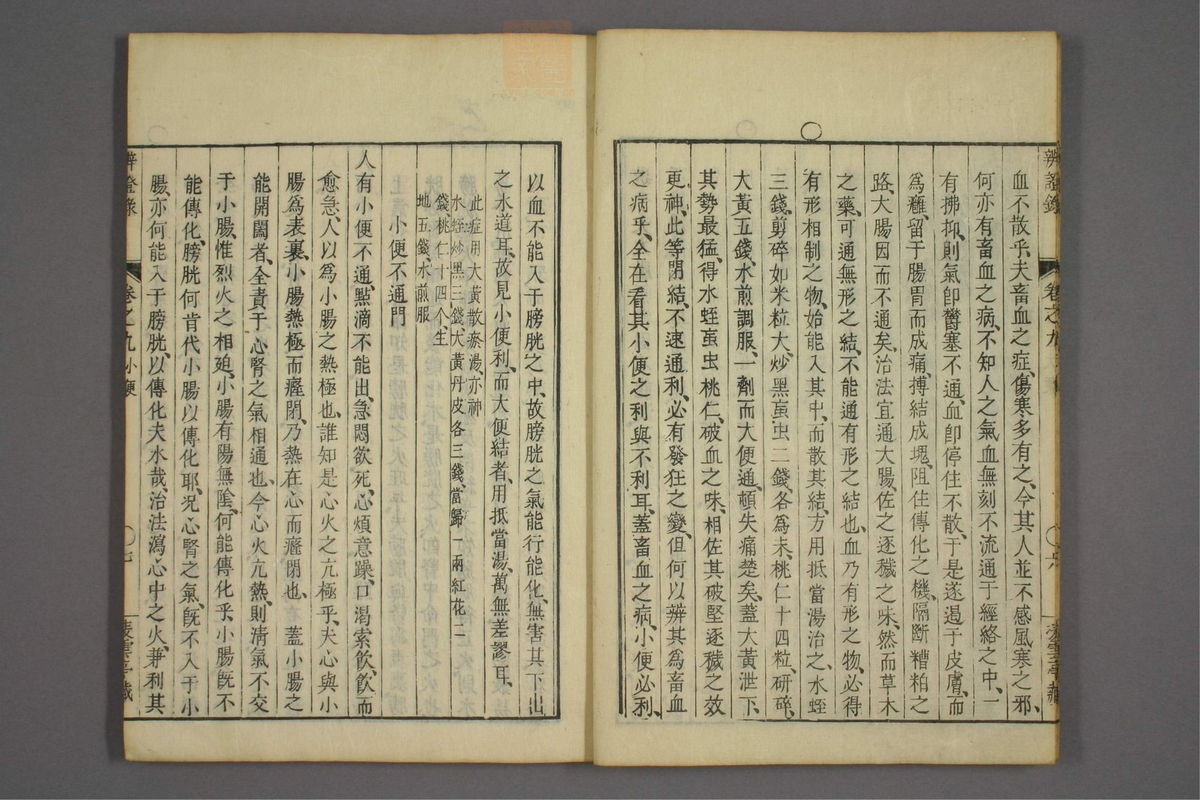 血不散乎、夫畜血之症、傷寒多有之、今其人並不感風寒之邪、
何亦有畜血之病、不知人之氣血無刻不流通于經絡之中、一
有拂抑、則氣卽鬱塞不通、血卽停住不散、于是遂遏于皮膚、而
為癰、留于腸胃而成痛、搏結成塊、阻住傳化之機、隔斷糟粕之
路、大腸因而不通矣、治法宜通大腸、佐之逐穢之味、然而草木
之藥、可通無形之結、不能通有形之結也、血乃有形之物、必得
有形相制之物、始能入其中、而散其結、方用抵當湯治之、水蛭
三錢、剪碎如米粒大、炒黑䖟虫二錢、各為末、桃仁十四粒、研碎、
大黃五錢、水煎調服、一劑而大便通、頓失痛楚矣、蓋大黃泄下、
其勢最猛、得水蛭䖟虫桃仁、破血之味、相佐其破堅逐穢之效
更神、此等閉結、不速通利、必有發狂之變、但何以辨其為畜血
之病乎、全在看其小便之利與不利耳、蓋畜血之病、小便必利、
辨證錄
卷之九
六
以血不能入于膀胱之中、故膀胱之氣能行能化、無害其下出
之水道耳、故見小便利、而大便結者、用抵當湯、萬無差謬耳、
此症用大黃散瘀湯、亦神
水蛭炒黑三錢、大黃丹皮各三錢、當歸一兩紅花二
錢桃仁十四个、生
地五錢、水煎服
小便不通門
人有小便不通、點滴不能出、急悶欲死、心煩意躁、口渴索飲、飲而
愈急、人以為小腸之熱極也、誰知是心火之亢極乎、夫心與小
腸為表裏、小腸熱極而癃閉、乃熱在心而癃閉也、蓋小腸之
能開闔者、全責于心腎之氣相通也、今心火亢熱、則清氣不交
于小腸、惟烈火之相廹、小腸有陽無陰、何能傳化乎、小腸旣不
能傳化、膀胱何肯代小腸以傳化耶、况心腎之氣、旣不入于小
腸、亦何能入于膀胱、以傳化夫水哉、治法瀉心中之火、兼利其
辨證錄
卷之九 小便
七